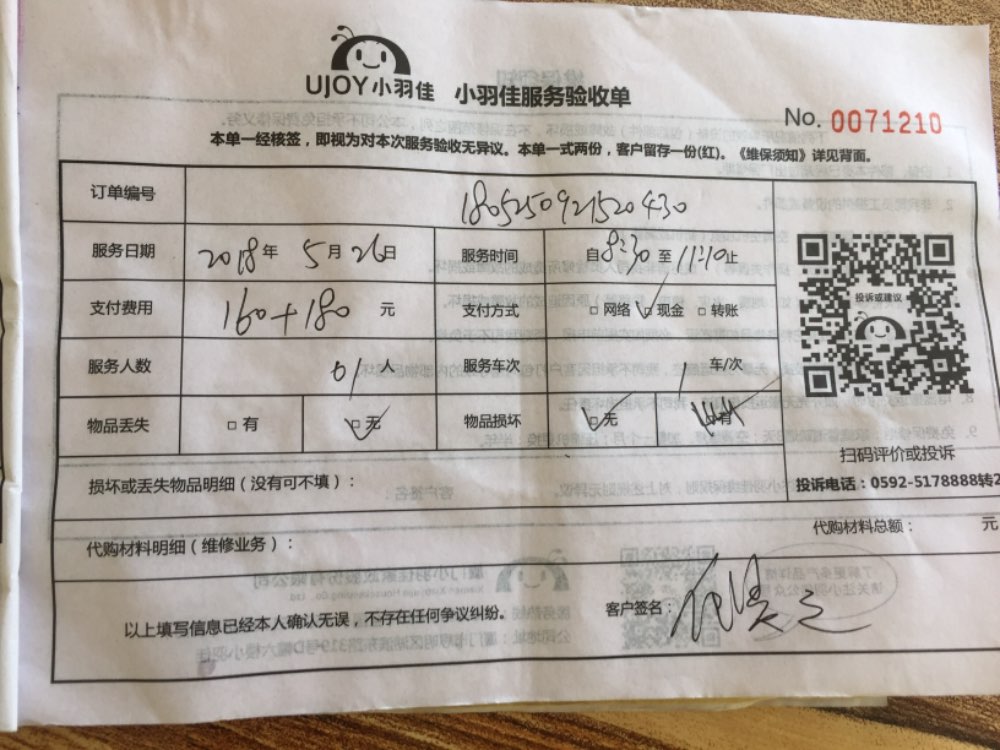 UJOY小羽佳 小羽佳服务验收单
No. 0071210
本单一经核签，即视为对本次服务验收无异议。本单一式两份，客户留存一份(红)。《维保须知》详见背面。
订单编号 1805250921520430
服务日期 2018年 5月 26日 服务时间 自8:30至11:10止
支付费用 160+180 元 支付方式 □网络 □现金 □转账
投诉或建议
服务人数 01人 服务车次 / 车/次
物品丢失 □有 □无 物品损坏 □无 □有
扫码评价或投诉
损坏或丢失物品明细（没有可不填）：
投诉电话：0592-5178888转2
代购材料总额： 元
代购材料明细（维修业务）：
客户签名：
以上填写信息已经本人确认无误，不存在任何争议纠纷。